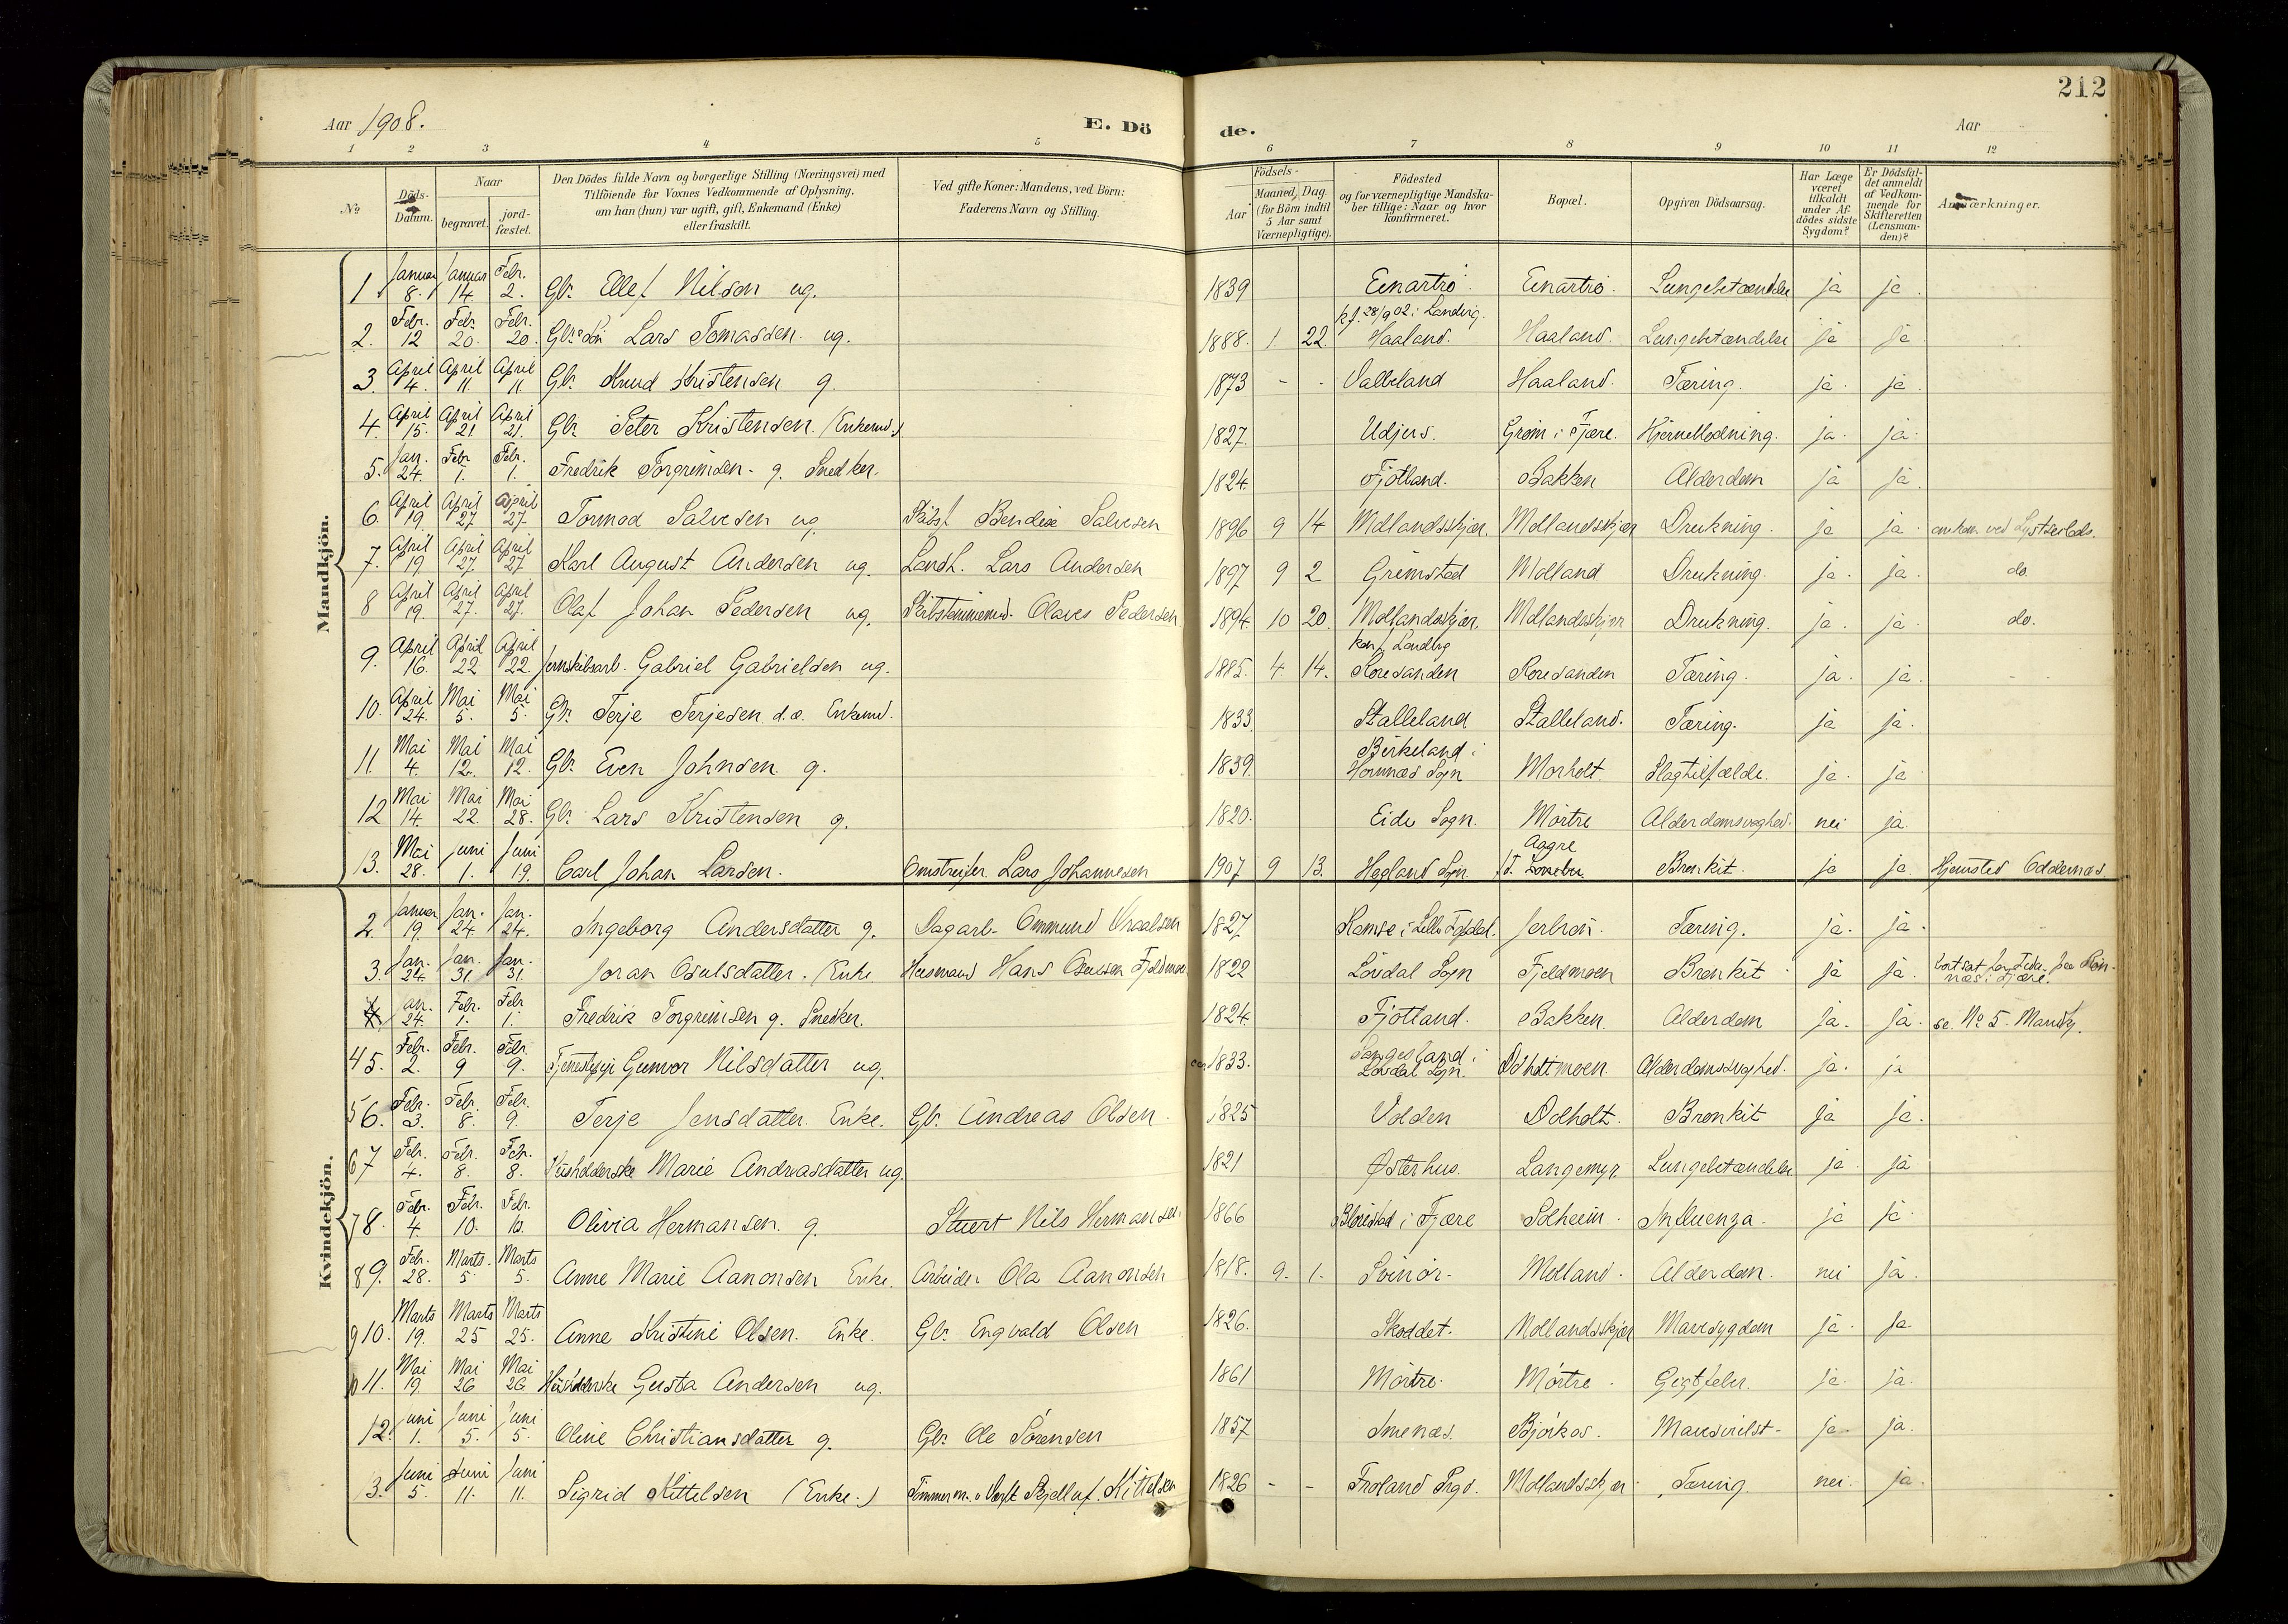 212
Aar 1908. E. Dö de. Aar
1 2 3 4 5 6 7 8 9 10 11 12
№ Döds-Datum. Naar begravet. jord-fæstet. Den Dödes fulde Navn og borgerlige Stilling (Næringsvei) med Tilföiende for Voxnes Vedkommende af Oplysning, om han (hun) var ugift, gift, Enkemand (Enke) eller fraskilt. Ved gifte Koner: Mandens, ved Börn: Faderens Navn og Stilling. Födsels- Aar Maaned, Dag. (for Börn indtil 5 Aar samt Værnepligtige). Födested og for værnepligtige Mandska-ber tillige: Naar og hvor konfirmeret. Bopæl. Opgiven Dödsaarsag. Har Læge været tilkaldt under Af-dödes sidste Sygdom? Er Dödsfal-det anmeldt af Vedkom-mende for Skifteretten (Lensman-den)? Anmærkninger.
Mandkjön.
1. Januar 8. Januar 14 Febr. 2. Gbr. Ellef Nilsen ug. 1839 Einartrö. Einartrö. Lungebetændelse ja ja.
2. Febr. 12 Febr. 20. Febr. 20. Gbr. Sön Lars Tomassen. ug. 1888. 1. 22. kf. 28/9 02 i Landvig. Haaland. Haaland. Lungebetændelse ja ja
3. April 4. April 11. April 11. Gbr. Knud Kristensen g. 1873 - - Valleland Haaland. Tæring. ja. ja.
4. April 15. April 21. April 21. Gbr. Peter Kristensen. (Enkemd.) 1827. Udjus. Grøm i Fjære. Hjerneblødning. ja. ja.
5. Jan. 24. Febr. 1. Febr. 1. Fredrik Torgrimsen. g. Snedker. 1824. Fjotland. Bakken Alderdom ja ja.
6. April 19. April 27. April 27. Tormod Salvesen ug. Skibsf. Bendix Salvesen 1896 9 14 Mollandsskjær. Mollandsskjær Drukning. ja ja. omkom ved Lystseilads.
7. April 19 April 27. April 27. Karl August Andersen ug. Landh. Lars Andersen 1897 9 2 Grimstad Molland Drukning. ja. ja. do.
8 April 19. April 27. April 27. Olaf Johan Pedersen ug. Skibstømmermd. Olaves Pedersen. 1894. 10 20. Mollandsskjær. Mollandsskjær Drukning. ja. ja. do.
9. April 16. April 22 April 22. Jernskibsarb. Gabriel Gabrielsen ug. 1885. 4. 14. konf. Landvig Roresanden Roresanden Tæring. ja. ja.
10. April 24. Mai 5. Mai 5. Gbr. Terje Terjesen d.æ. Enkemd. 1833. Stalleland Stalleland. Tæring. ja ja.
11. Mai 4. Mai 12. Mai 12. Gbr. Even Johnsen. g. 1839. Birkeland i Hornnæs Sogn Morholt. Slagtilfælde. ja. ja
12 Mai 14. Mai 22. Mai 28. Gbr. Lars Kristensen g. 1820. Eide Sogn. Mörtre Alderdomssvaghed. nei ja.
13. Mai 28. Juni 1. Juni 19. Carl Johan Larsen. Omstreifer Lars Johannesen 1907 9 13. Hegland Sogn Aggre Bronkit. ja ja. Hjemsted Oddernæs.
Kvindekjön.
2. Januar 19. Jan. 24. Jan. 24. Ingeborg Andersdatter g. Dagarb. Ommund Vraalsen 1827 Ramse i Lille Topdal. Jerbröi. Tæring. ja. ja.
3. Jan. 24. Jan. 31. Jan. 31. Joran Oselsdatter. (Enke Husmand Hans Fjeldmoen 1822 Lövdal Sogn Fjeldmoen Bronkit. ja ja. bortsat paa Rön-næs i Fjære.
4. Jan. 24. Febr. 1. Febr. 1. Fredrik Torgrimsen g. Snedker. 1824. Fjotland. Bakken. Alderdom ja. ja. se. No 5. Mandkj.
4 5. Febr. 2. Febr. 9 Febr. 9. Tjenestepige Gunvor Nilsdatter ug. ca 1833. Lövdal Sogn. Dolholtmoen Alderdomssvaghed. ja. ja
5 6. Febr. 3. Febr. 8. Febr. 9. Terje Jensdatter. Enke. Gbr. Andreas Olsen. 1825 Udden Dolholt. Bronkit ja ja.
6 7 Febr. 4. Febr. 8. Febr. 8. Husholderske Marie Andreasdatter ug. 1821 Østerhus. Langemyr. Lungebetændelse ja ja
7 8. Febr. 4. Febr. 10. Febr. 10. Olivia Hermansen. g. Stuert Nils Hermansen. 1866 i Fjære Solheim. Influenza. ja ja.
8 9. Febr. 28. Marts. 5. Marts 5. Anne Marie Aanonsen Enke. Arbeider Ola Aanonsen 1818. 9. 1. Svinör. Molland. Alderdom. nei ja.
9 10. Marts 19. Marts 25 Marts 25. Anne Kristine Olsen. Enke. Gbr. Engvald Olsen 1826. Skoddet. Mollandsskjær Mavesygdom ja. ja.
10 11. Mai 19. Mai 26 Mai 26 Husholderske Gusta Andersen ug. 1861 Mörtre. Mörtre. Gigtfeber. ja. ja.
12. Juni 1. Juni 5. Juni 5. Oline Christiansdatter g. Gbr. Ole Sörensen 1857 Imenæs. Bjorkos. ja. ja.
13. Juni 5. Juni 11. Juni 11. Sigrid Kittelsen (Enke.) Tømmerm. Kjelluf. Kittelsen 1826 - - Froland Prgd. Mollandsskjær. Tæring nei. ja.